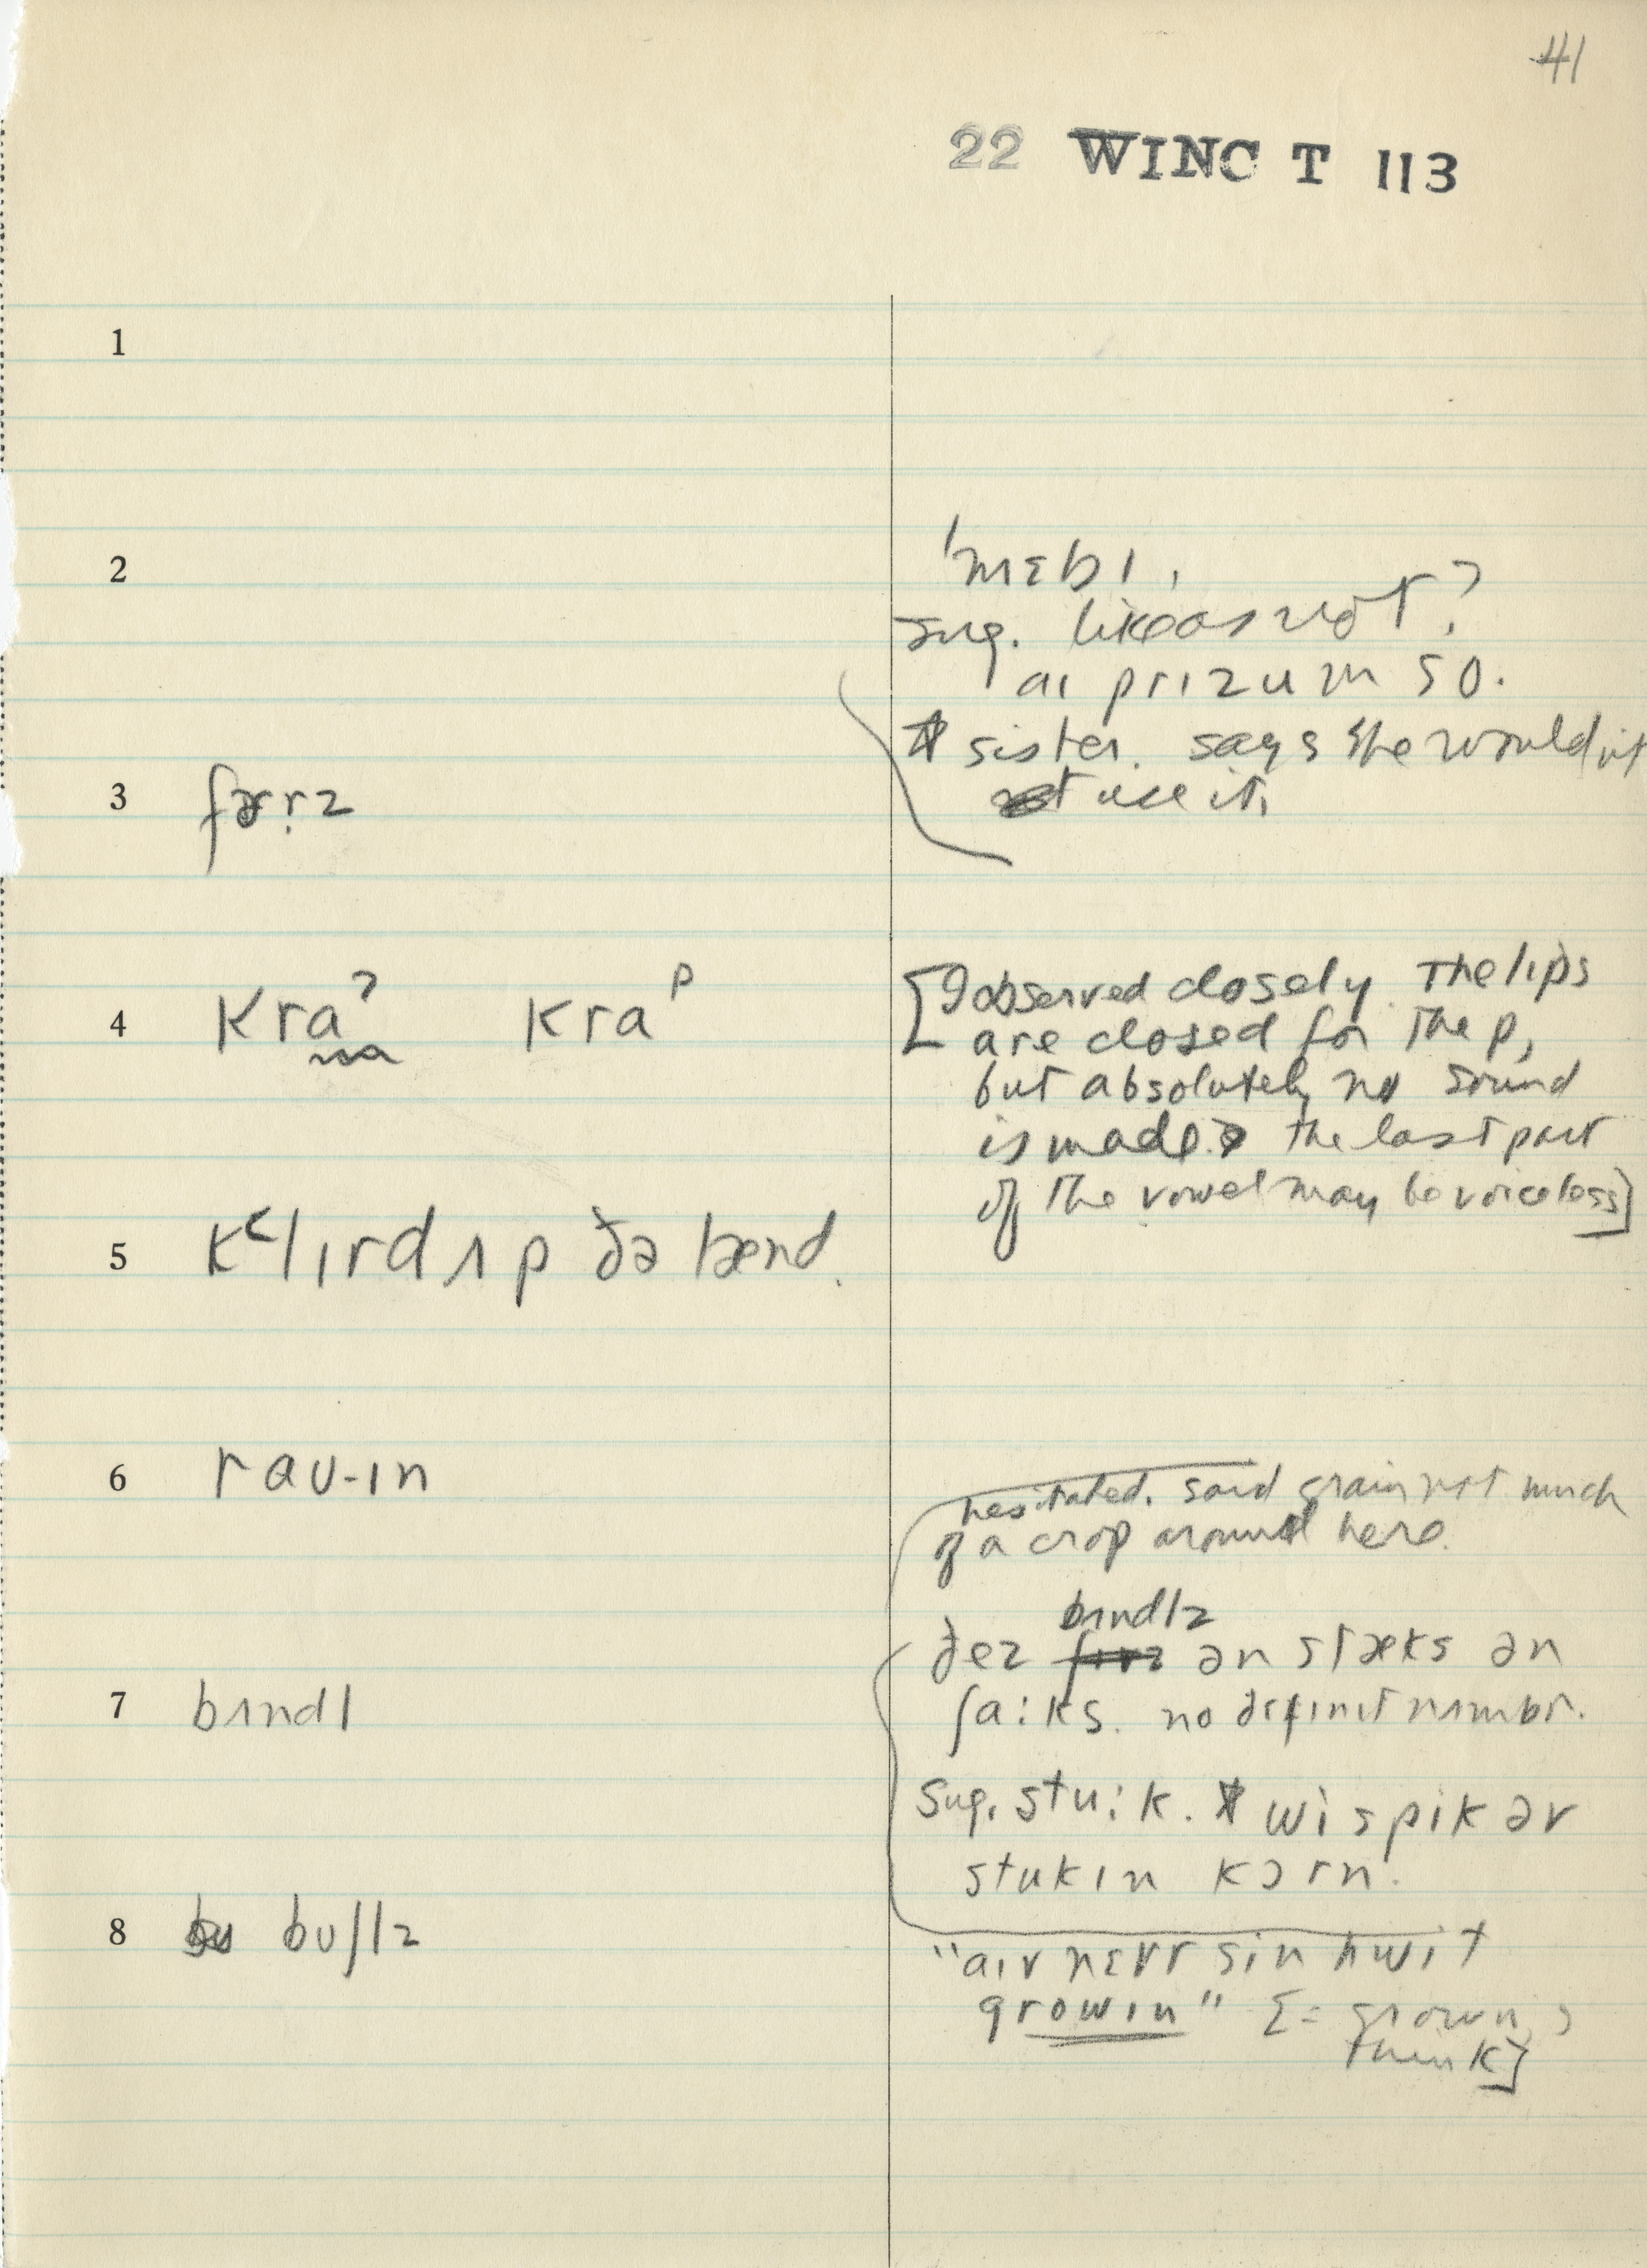 41
22 WINC T 113
1
2
'mɛbɪ,
sug. like as not?
aɪ prɪzum so.
sister. says she wouldn't
use it.
3
4 kraˀ kraᵖ
[I observed closely. The lips
are closed for the p,
but absolutely no sound
is made. the last part
of the vowel may be voiceless]
5 k‹lɪrd ʌp ðə lænd.
6 raʊ-ɪn
hesitated. said grain not much
of a crop around here.
bʌndlz
ðez ən stæks ən
ʃaːks. no dɛfɪnɪt nʌmbr.
7 bʌndl
sug. stuːk. wi spik əv
stukɪn kɔrn.
8 bʊʃlz
"aɪv nɛvr sin hwit
growɪn" [= grown, I
think]